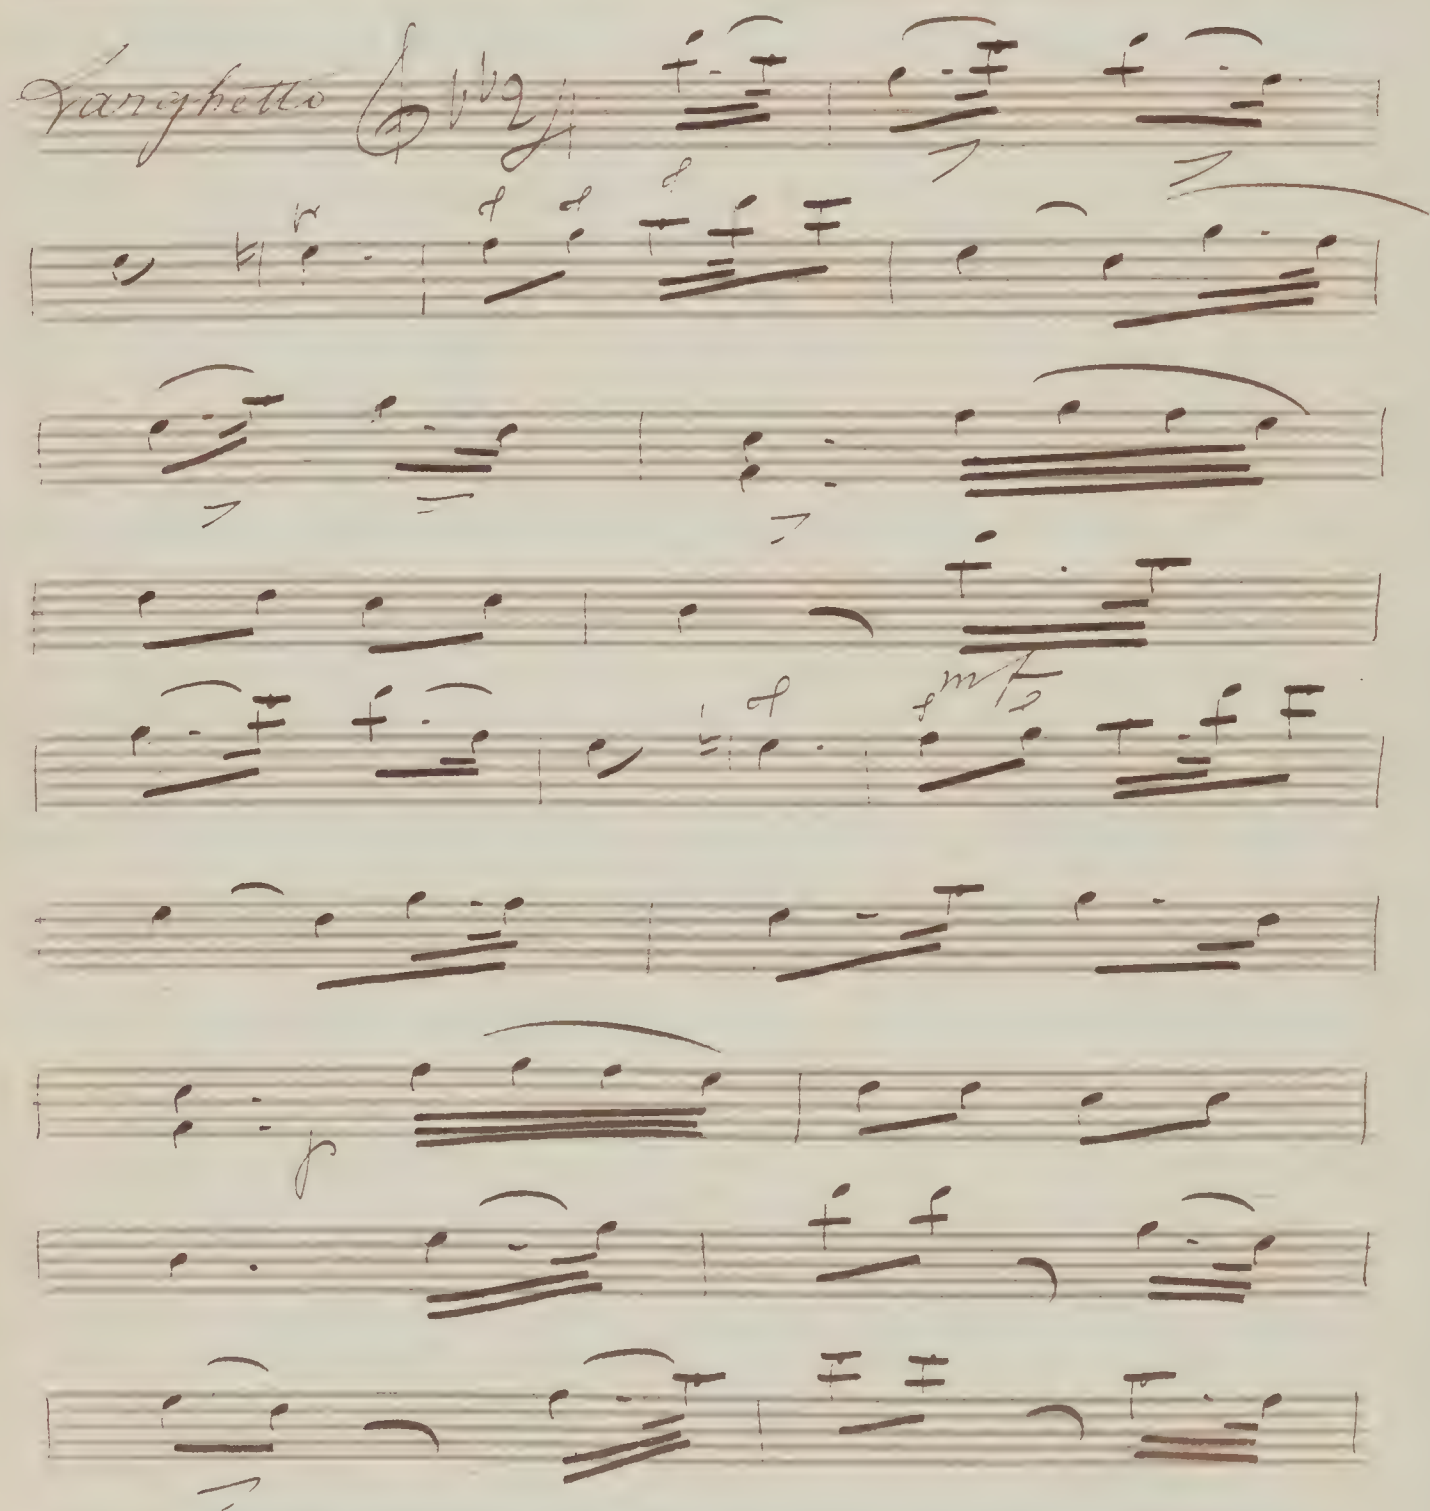 Larghetto 2/4
mf
p